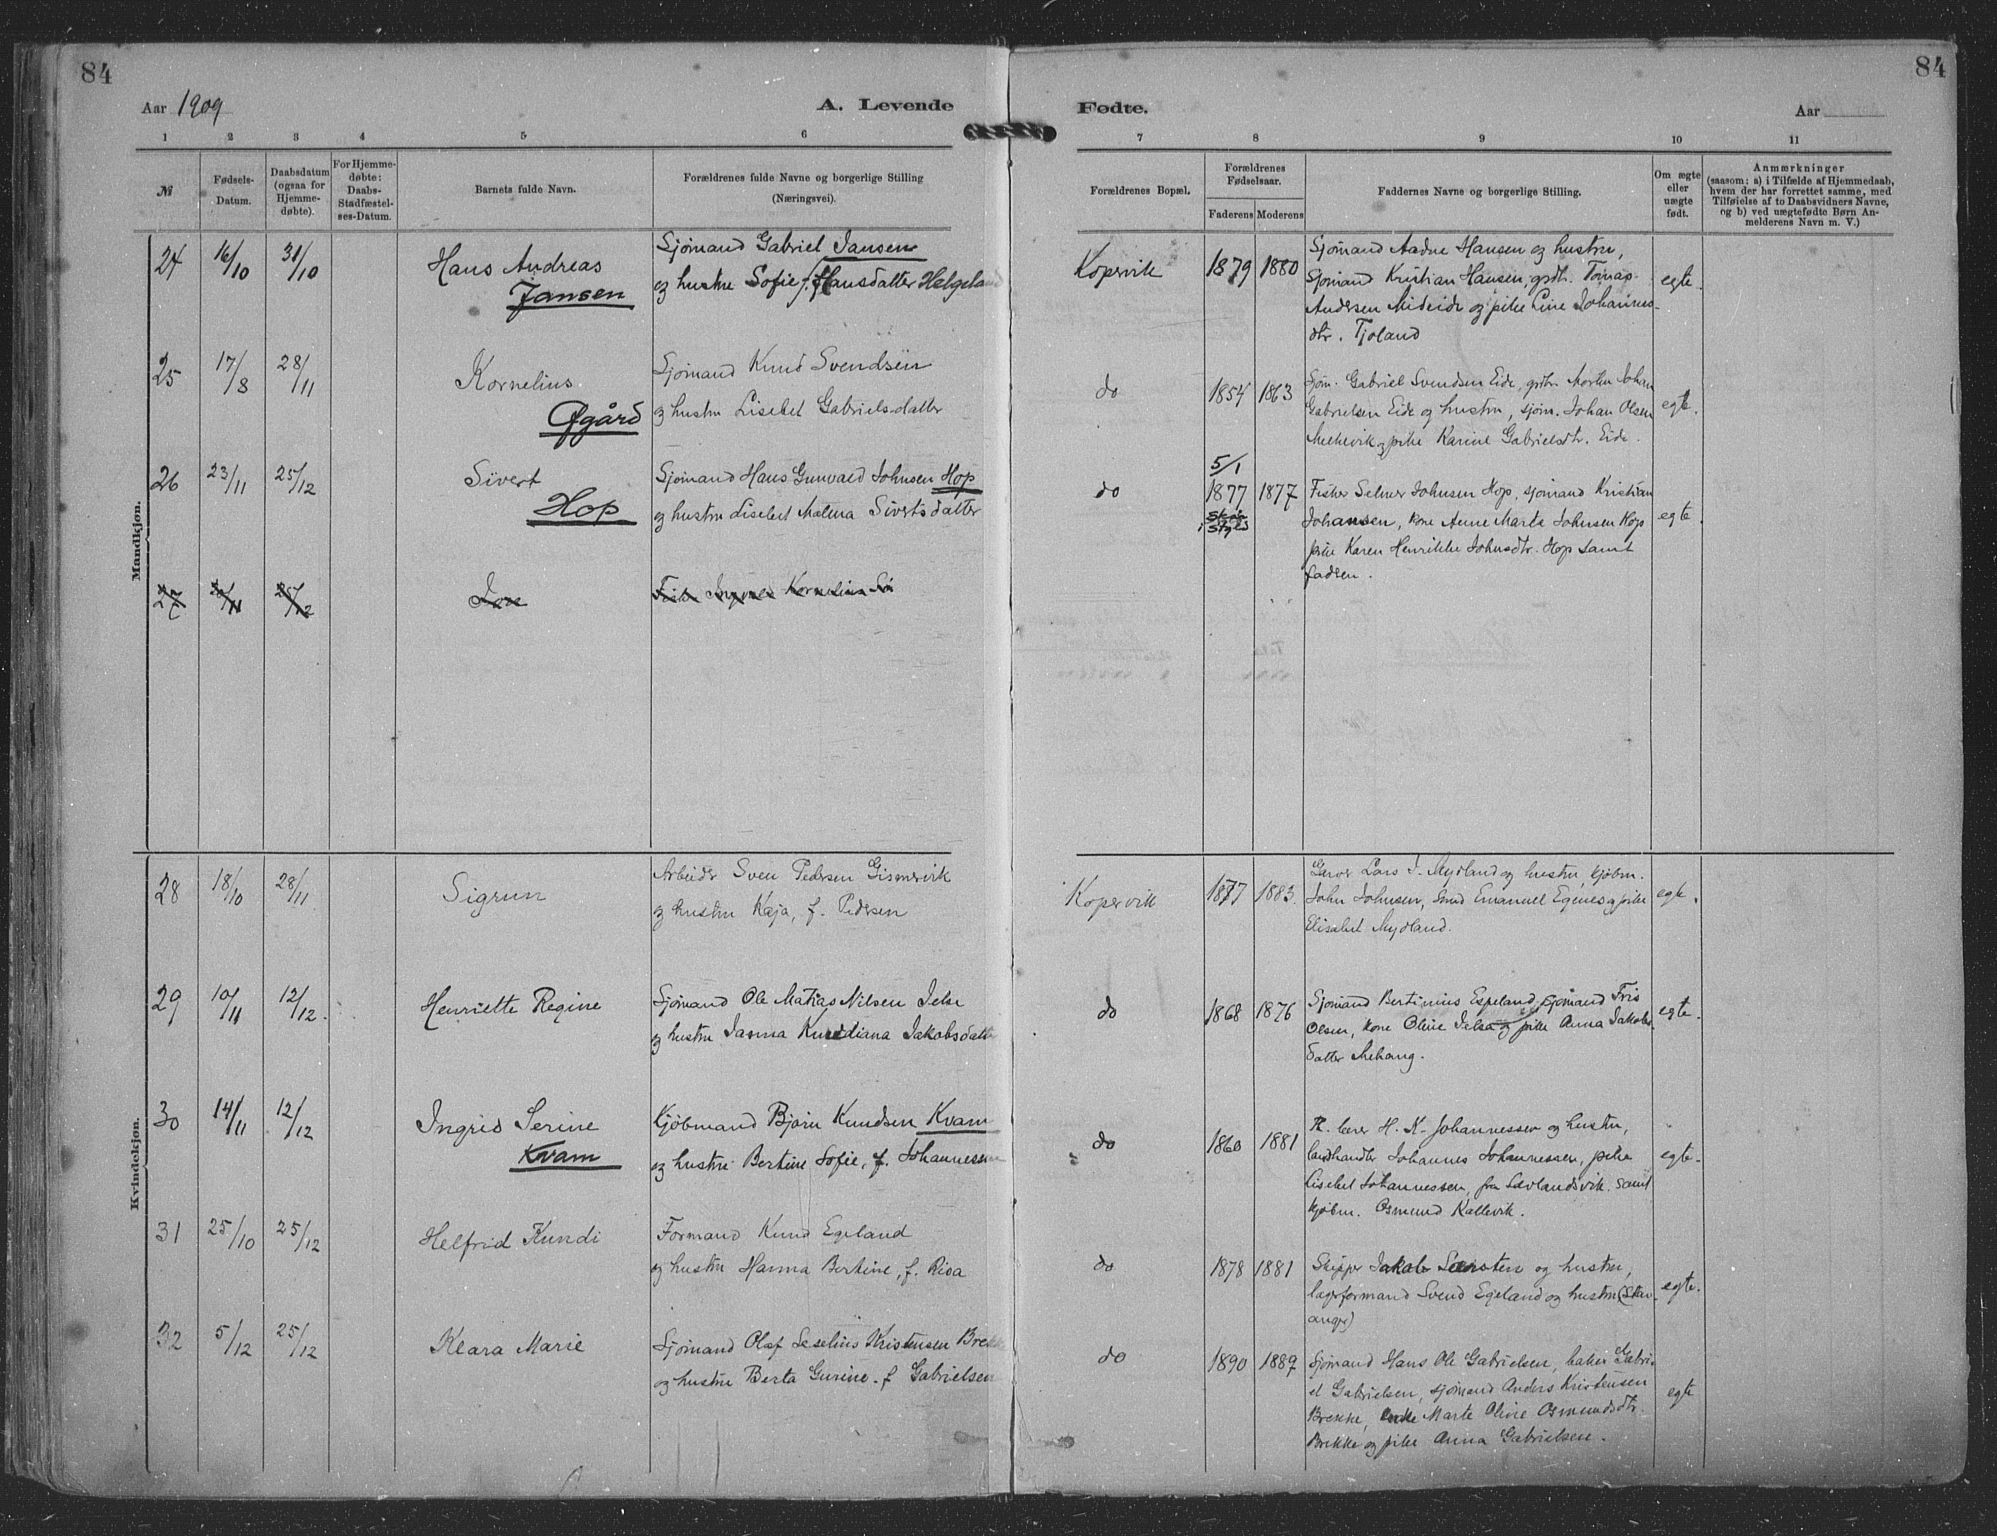 84
84
Aar 1909
A. Levende
Fødte.
Aar
1 2 3 4 5 6 7 8 9 10 11
№
Fødsels-Datum.
Daabsdatum (ogsaa for Hjemmedøbte).
For Hjemmedøbte: Daabs-Stadfæstelses-Datum.
Barnets fulde Navn.
Forældrenes fulde Navne og borgerlige Stilling (Næringsvei).
Forældrenes Bopæl.
Forældrenes Fødselsaar.
Faderens Moderens
Faddernes Navne og borgerlige Stilling.
Om ægte eller uægte født.
Anmærkninger
(saasom: a) i Tilfælde af Hjemmedaab,
hvem der har forrettet samme, med
Tilføielse af to Daabsvidners Navne,
og b) ved uægtefødte Børn An-
melderens Navn m. V.)
Mandkjøn.
24 16/10 31/10
Hans Andreas
Jansen
Sjømand Gabriel Jansen
og hustru Sofie f. Hansdatter Helgeland
Kopervik
1879 1880
Sjømand Aadne Hansen og hustru,
Sjømand Kristian Hansen, grdbr. Tomas
Andersen Mideide og pike Line Johannes-
dtr. Tjoland
egte.
25 17/8 28/11
Kornelius
Øgård
Sjømand Knud Svendsen
og hustru Lisebet Gabriels-datter
do
1854 1863
Sjøm. Gabriel Svendsen Eide, grdbr. Morten Johan
Gabrielsen Eide og hustru, sjøm. Johan Olsen
og pike Karine Gabrielsdtr. Eide.
egte.
26 23/11 25/12
Sivert
Hop
Sjømand Hans Gunvald Johnsen Hop
og hustru Lisebet Malena Sivertsdatter
do
5/1
1877 1877
Fisker Selmer Johnsen Hop, sjømand Kristian
Johansen, kone Anne Marta Johnsen Hop
pike Karen Henrikke Johnsdtr. Hop samt
fadren.
egte.
27 25/12
Fisker Kornelius
Kvindekjøn.
28 18/10 28/11
Sigrun
Arbeider Sven Pedersen Gismervik
og hustru Kaja, f. Pedersen
Kopervik
1877 1883.
Garver Lars J. Mydland og hustru, kjøbm.
John Johnsen, Smed Emanuel Egenes og pike
Elisabet Mydland.
egte.
29 10/11 12/12.
Henriette Regine
Sjømand Ole Matias Nilsen Jelsa
og hustru Jasma Jakobsdatter
do
1868 1876
Sjømand Bertinius Espeland, sjømand
Olsen, kone Oline Jelsa og pike Anna Jakobs-
datter
egte.
30 14/11 12/12
Ingrid Serine
Kvam
Kjøbmand Bjørn Knudsen Kvam
og hustru Bertine Sofie, f. Johannessen
do
1860 1881
H. K. Johannessen og hustru,
landhandler Johannes Johannessen, pike
Lisebet Johannessen, fra Sævlandsvik. samt
kjøbm. Osmund Kallevik.
egte.
31 25/10 25/12
Helfrid Kundi
Formand Knud Egeland
og hustru Hanna Bertine, f. Risa
do
1878 1881
Skipper Jakob og hustru,
lagerformand Svend Egeland og hustru (Stav-
anger)
egte.
32 5/12 25/12
Klara Marie
Sjømand Olaf Seselius Kristensen Brekke
og hustru Berta Gurine. f Gabrielsen
do
1890 1889
Sjømand Hans Ole Gabrielsen, baker Gabri-
el Gabrielsen, sjømand Anders Kristensen
Brekke, enke Marte Oline Osmundsdtr.
Brekke og pike Anna Gabrielsen.
egte